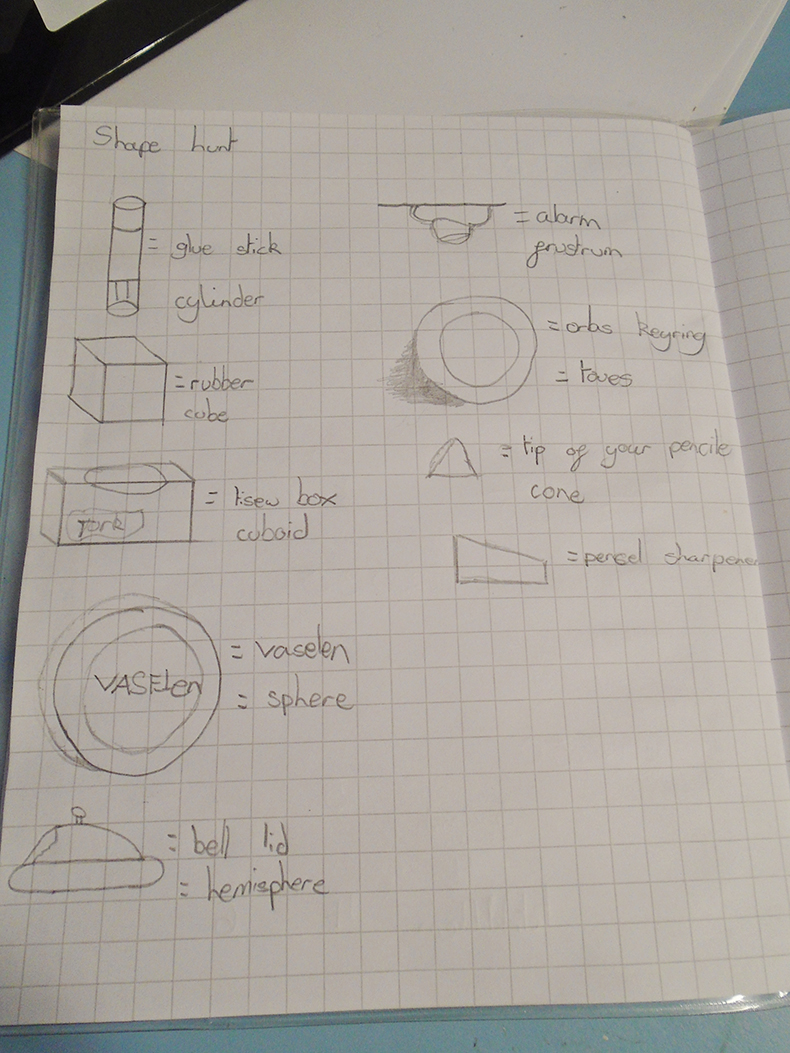 Shape hunt
= glue stick
cylinder
= rubber
cube
Tork
= tisew box
cuboid
VASELen
= vaselen
= sphere
= bell lid
= hemisphere
= alarm
frustrum
= orbs keyring
= toves
= tip of your pencile
cone
= pensel sharpener